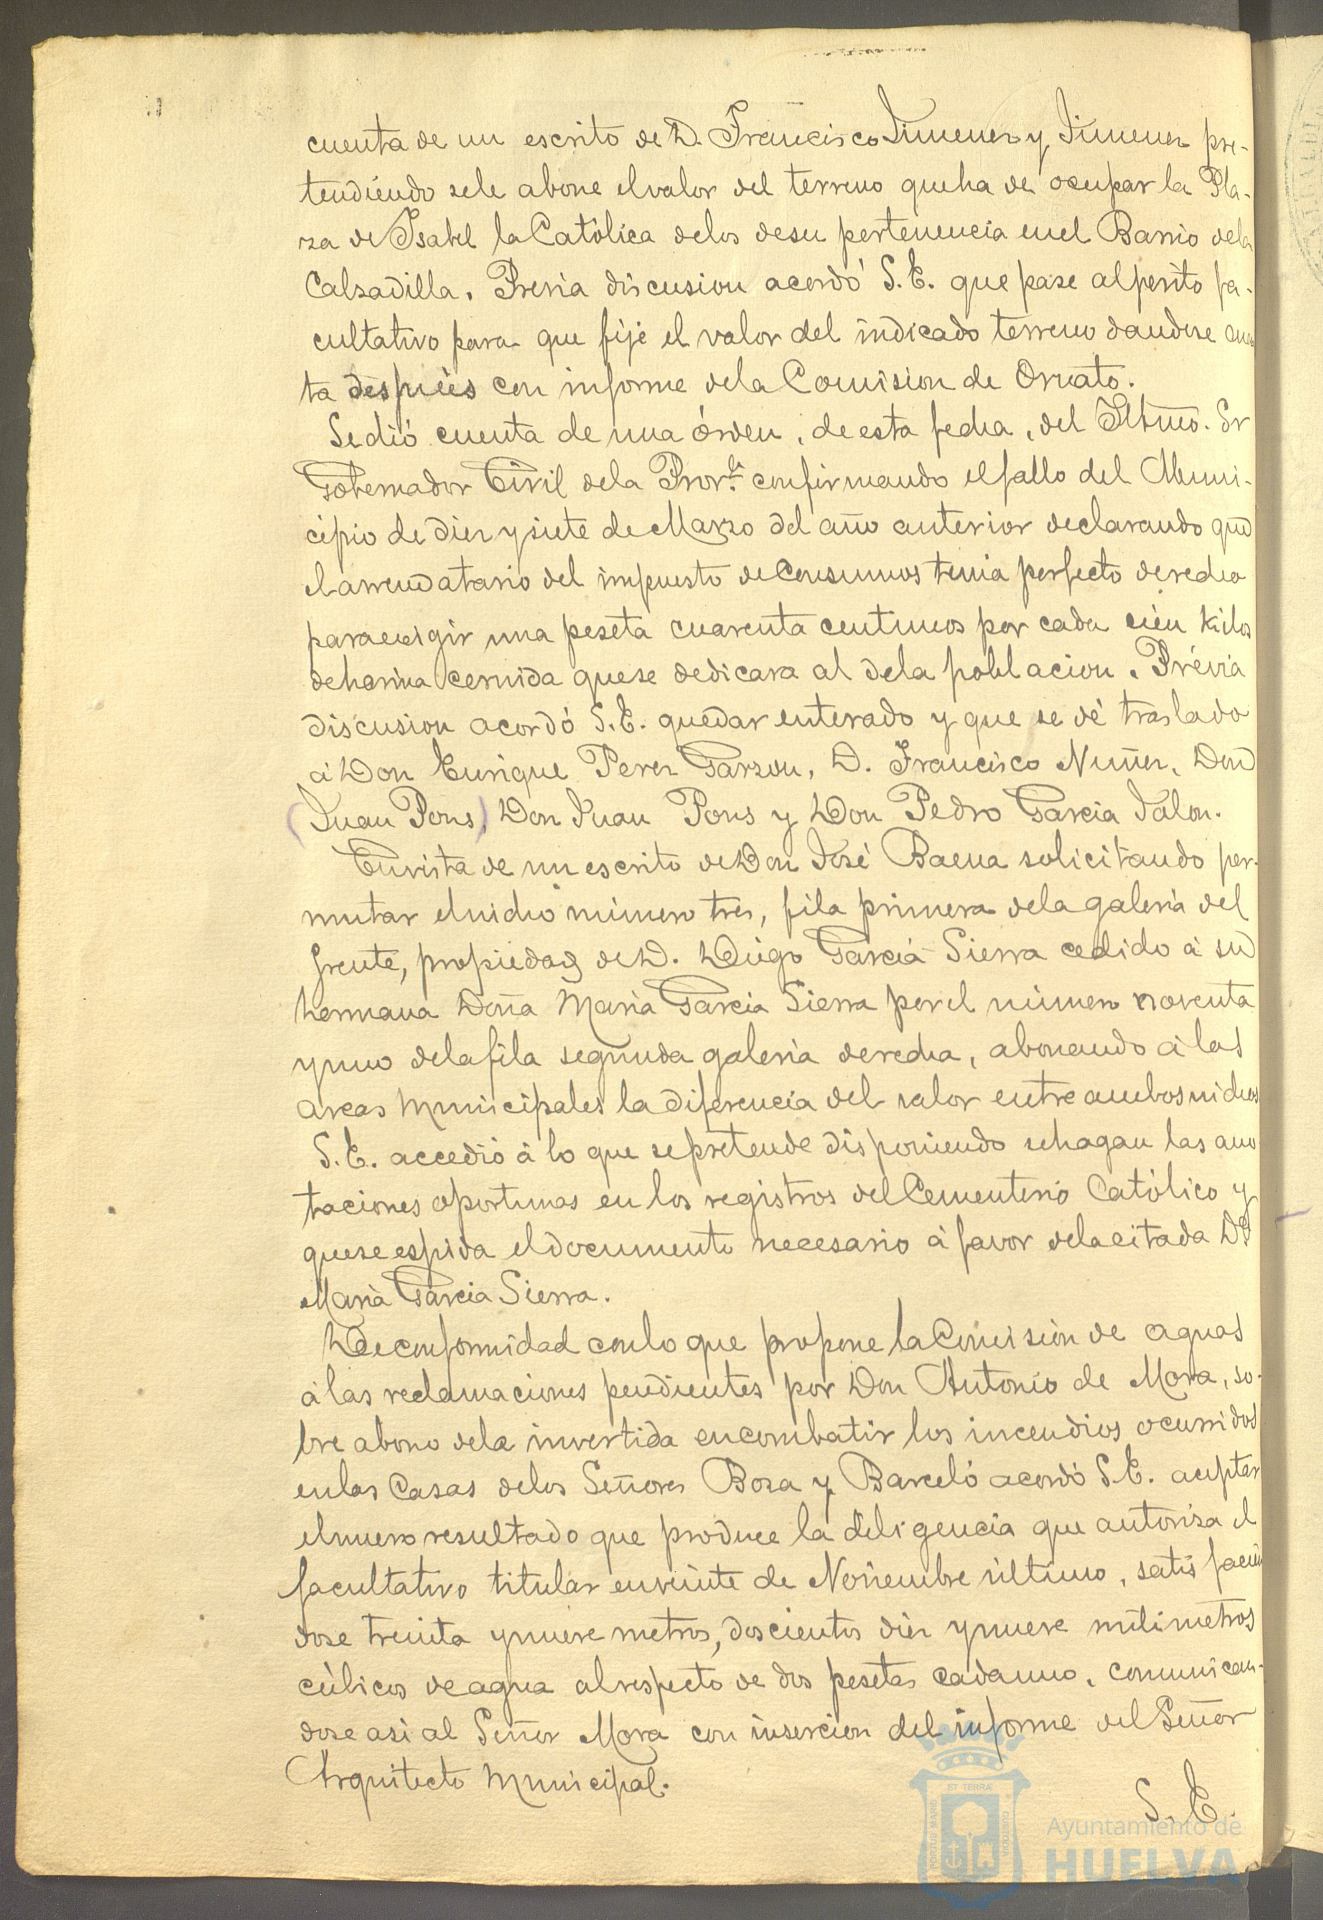 cuenta de un escrito de D. Francisco Jimenez y Jimenez pre-
tendiendo se le abone el valor del terreno que ha de ocupar la Pla-
za de Isabel la Católica de los de su pertenencia en el Barrio de la
Calzadilla. Prévia discusion acordó S. E. que pase al perito fa-
cultativo para que fije el valor del indicado terreno dandose cuen
ta después con informe de la Comision de Ornato.
Se dió cuenta de una órden, de esta fecha, del Iltmo. Sr
Gobernador Civil de la Prov.ª confirmando el fallo del Muni-
cipio de diez y siete de Marzo del año anterior declarando que
el arrendatario del impuesto de Consumos tenia perfecto derecho
para exigir una peseta cuarenta centimos por cada cien kilos
de harina cernida que se dedicara al de la poblacion. Prévia
discusion acordó S. E. quedar enterado y que se dé traslado
á Don Enrique Perez Garzon, D. Francisco Nuñez, Don
(Juan Pons), Don Juan Pons y Don Pedro Garcia Jalon.
En vista de un escrito de Don José Baena solicitando per-
mutar el nicho número tres, fila primera de la galeria del
frente, propiedad de D. Diego Garcia Sierra cedido á su
hermana Doña Maria Garcia Sierra por el número noventa
y uno de la fila segunda galeria derecha, abonando á las
arcas Municipales la diferencia del valor entre ambos nichos
S. E. accedió á lo que se pretende disponiendo se hagan las ano
taciones oportunas en los registros del Cementerio Católico y
que se espida el documento necesario á favor de la citada Dª
Maria Garcia Sierra.
De conformidad con lo que propone la Comision de aguas
á las reclamaciones pendientes por Don Antonio de Mora, so-
bre abono de la invertida en combatir los incendios ocurridos
en las Casas de los Señores Boza y Barceló acordó S. E. aceptar
el nuevo resultado que produce la diligencia que autoriza el
facultativo titular en veinte de Noviembre último, satisfacien
dose treinta y nueve metros, doscientos diez y nueve milimetros
cúbicos de agua al respecto de dos pesetas cada uno, comunican-
dose asi al Señor Mora con insercion del informe del Señor
Arquitecto Municipal.
S. E.
Ayuntamiento de
HUELVA